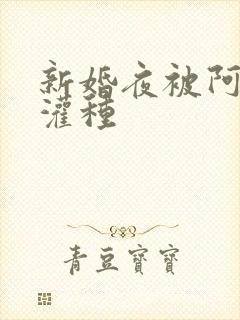 新婚夜被阿
灌種
青豆寶寶